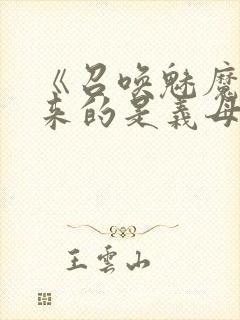 《召唤魅魔
来的是义母
王云山